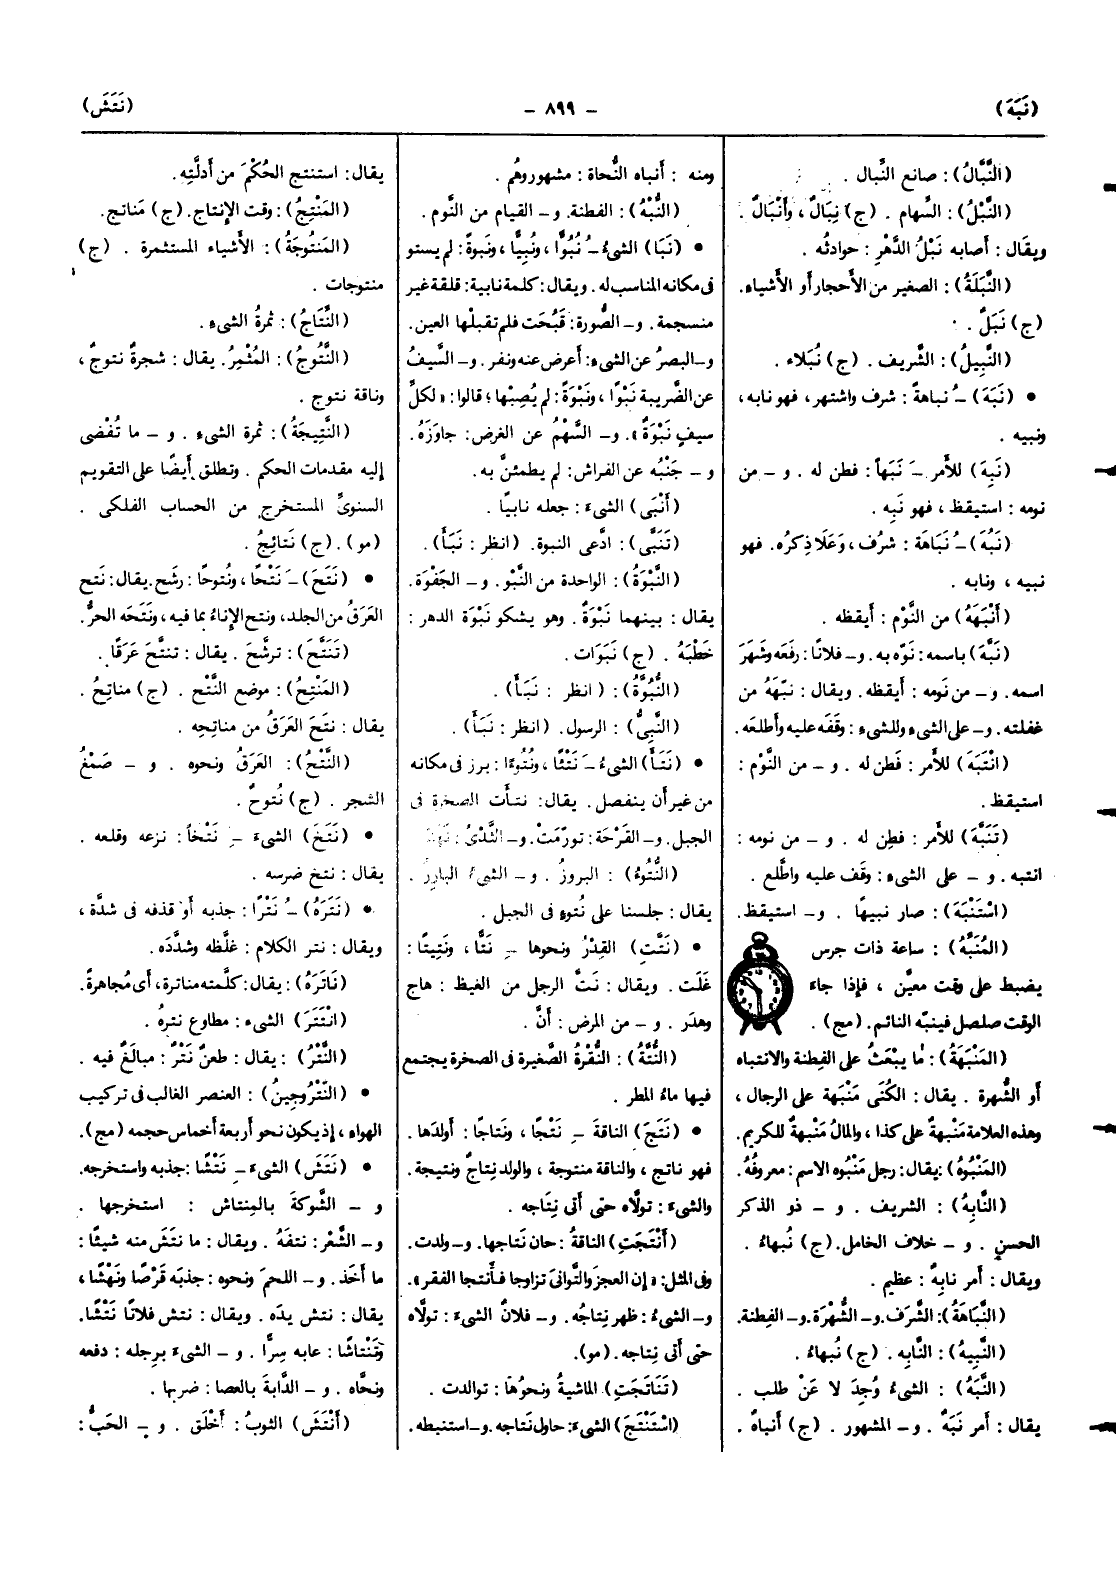 (نَبَهَ)
- ٨٩٩ -
(نَتَشَ)
(النَّبَّالُ): صانع النِّبال .
(النَّبْلُ): السِّهام . (ج) نِبَالٌ ، وأَنْبَالٌ .
ويقَال : أصابه نَبْلُ الدَّهْرِ : حوادثُه .
(النَّبَلَةُ) : الصغير من الأحجار أو الأشياء.
(ج) نَبَلٌ .
(النَّبِيلُ) : الشَّريف . (ج) نُبَلاء .
• (نَبَهَ) ـُ نباهةً : شرف واشتهر ، فهو نابه ،
ونبيه .
(نَبِهَ) للأمر ـَ نَبَهاً : فطن له . و - من
نومه : استيقظ ، فهو نَبِه .
(نَبُهَ) ـُ نَبَاهَة : شرُف ، وَعَلَا ذِكرُه. فهو
نبيه ، ونابه .
(أَنْبَهَهُ) من النَّوْم : أيقظه .
(نَبَّهَ) باسمه : نوّه به. و- فلانًا : رفَعَه وشَهَرَ
اسمه. و - من نَومه : أيقظه. ويقال : نبَّهَهُ من
غفلته. و- على الشيء وللشيء : وقَفَه عليه وأطلعَه.
(انْتَبَهَ) للأمر : فَطن له . و - من النَّوْم :
استيقظ .
(تَنَبَّهَ) للأمر : فطِن له . و - من نومه :
انتبه. و - على الشيء : وقَف عليه واطَّلع .
(اسْتَنْبَهَ) : صار نبيهًا . و- استيقظ.
(المُنَبِّهُ) : ساعة ذات جرس
يضبط على وقت معيَّن ، فإذا جاء
الوقت صلصل فينبّه النائم . (مج) .
(المَنْبَهَةُ) : ما يبْعَثُ على الفِطنة والانتباه
أو الشُّهرة . يقال : الكُنَى مَنْبَهة على الرجال ،
وهذه العلامة مَنْبهةٌ على كذا ، والمالُ مَنْبهةٌ للكريم.
(المَنْبُوهُ) : يقال : رجل مَنْبُوه الاسم : معروفُهُ.
(النَّابِهُ) : الشريف . و - ذو الذكر
الحسن . و - خلاف الخامل. (ج) نُبهاءُ .
ويقال : أمر نابِهٌ : عظيم .
(النَّبَاهَةُ): الشَّرَف. و- الشُّهْرَة. و- الفِطنة.
(النَّبِيهُ) : النَّابِه . (ج) نُبهاءُ .
(النَّبَهُ) : الشيءُ وُجِدَ لا عَنْ طلب .
يقال : أمر نَبَهٌ . و- المشهور . (ج) أنباهٌ .
ومنه : أنباه النُّحاة : مشهوروهُم .
(النُّبْهُ) : الفطنة. و- القيام من النَّوم .
• (نَبَا) الشيءُ ـُ نُبُوًّا ، ونُبِيًّا ، ونَبوةً : لم يستو
في مكانه المناسب له. ويقال : كلمة نابية : قلقة غير
منسجمة. و- الصُّورة : قَبُحَت فلم تقبلها العين.
و- البصرُ عن الشيء : أعرض عنه ونفر. و- السَّيفُ
عن الضَّريبة نَبْوًا ، ونَبْوَةً : لم يُصِبْها ؛ قالوا : « لكلِّ
سيفٍ نَبْوَةٌ ». و- السَّهْمُ عن الغرض : جاوَزَهُ.
و - جَنْبُه عن الفراش : لم يطمئنّ به .
(أَنْبَى) الشيءَ : جعله نابيًا .
(تَنَبَّى) : ادّعى النبوة. (انظر : نَبَأَ) .
(النَّبْوَةُ) : الواحدة من النَّبْوِ. و- الجَفْوَة.
يقال : بينهما نَبْوَةٌ . وهو يشكو نَبْوَةَ الدهر :
خَطْبَهُ . (ج) نَبَوَات.
(النُّبُوَّةُ) : ( انظر : نَبَأَ) .
(النَّبِيُّ) : الرسول. (انظر : نَبَأَ) .
• (نَتَأَ) الشيءُ ـَ نَتْئًا ، ونُتُوءًا : برز في مكانه
من غير أن ينفصل. يقال : نتأت الصخرة في
الجبل. و- القَرْحَة : تورّمَتْ. و- الثَّدْىُ :
(النُّتُوءُ) : البروزُ . و - الشيءُ البارزُ .
يقال : جلسنا على نُتوءٍ في الجبل .
• (نَتَّتِ) القِدْرُ ونحوها ـِ نَتًّا ، ونَتِيتًا :
غَلَت . ويقال : نَتَّ الرجل من الغيظ : هاج
وهدَر . و - من المرض : أَنَّ.
(النُّتَّةُ) : النُّقْرَةُ الصَّغيرة في الصخرة يجتمع
فيها ماءُ المطر .
• (نَتَجَ) الناقةَ ـِ نَتْجًا ، ونَتاجًا : أولدَها .
فهو ناتج ، والناقة منتوجة ، والولد نِتاجٌ ونتيجة.
والشيءَ : تولَّاه حتى أتى نِتاجه .
(أَنْتَجَتِ) الناقةُ : حان نَتاجها. و- ولدت.
وفي المثل: « إن العجزَ والتَّواني تزاوجا فأنتجا الفقر».
و- الشيءُ : ظهر نِتاجُه. و- فلانٌ الشيءَ : تولَّاه
حتى أتى نِتاجه. (مو).
(تَنَاتَجَتِ) الماشيةُ ونحوُها : توالدت .
(اسْتَنْتَجَ) الشيءَ : حاول نَتاجه. و- استنبطه .
يقال : استنتج الحُكْمَ من أَدلَّتِه.
(المَنْتِجُ) : وقت الإنتاج. (ج) مَناتِج.
(المَنتُوجَةُ) : الأشياء المستثمرة . (ج)
منتوجات .
(النَّتَاجُ) : ثمرةُ الشيء .
(النَّتُوجُ) : المُثْمِرُ. يقال : شجرةٌ نتوجٌ ،
وناقة نتوج .
(النَّتِيجَةُ) : ثمرة الشيء . و - ما تُفْضى
إليه مقدمات الحكم . وتطلق أيضًا على التقويم
السنويِّ المستخرج من الحساب الفلكى .
(مو) . (ج) نَتائِجُ .
• (نَتَحَ) ـَ نَتْحًا ، ونُتوحًا : رشَح. يقال : نَتح
العَرَقُ من الجلد، ونتح الإناءُ بما فيه ، ونَتَحَه الحرُّ.
(تَنَتَّحَ) : ترشَّح . يقال : تنتَّحَ عَرَقًا .
(المَنْتِحُ) : موضع النَّتْح . (ج) مناتِحُ .
يقال : نتَحَ العَرَقُ من مناتِحِه .
(النَّتْحُ) : العَرَقُ ونحوه . و - صَمْغُ
الشجر . (ج) نُتوحٌ .
• (نَتَخَ) الشيءَ ـِ نَتْخاً : نزعه وقلعه .
يقال : نتخ ضرسه .
• (نَتَرَهُ) ـُ نَتْرًا : جذبه أو قذفه في شدَّة ،
ويقال : نتر الكلام : غلَّظه وشدَّدَه.
(نَاتَرَهُ) : يقال : كلَّمته مناترة ، أي مُجاهرةً.
(انْتَتَرَ) الشيء : مطاوع نترهُ .
(النَّتْرُ) : يقال : طعنٌ نَتْرٌ : مبالَغٌ فيه .
• (النَّتْرُوجِينُ) : العنصر الغالب في تركيب
الهواء ، إذ يكون نحو أربعة أخماس حجمه (مج).
• (نَتَشَ) الشيءَ ـِ نَتْشًا : جذبه واستخرجه.
و - الشَّوكةَ بالمِنتاش : استخرجها .
و- الشَّعْر : نتفَهُ . ويقال : ما نتَش منه شيئًا :
ما أخذ. و- اللحمَ ونحوه : جذبَه قَرْصًا ونَهْشًا ،
يقال : نتش يدَه . ويقال : نتش فلانًا نَتْشًا.
وتَنْتاشًا : عابه سِرًّا . و - الشيءَ برِجله : دفعه
ونحَّاه . و - الدَّابةَ بالعصا : ضربها .
(أَنْتَشَ) الثوبُ : أخْلَق . و - الحَبُّ :